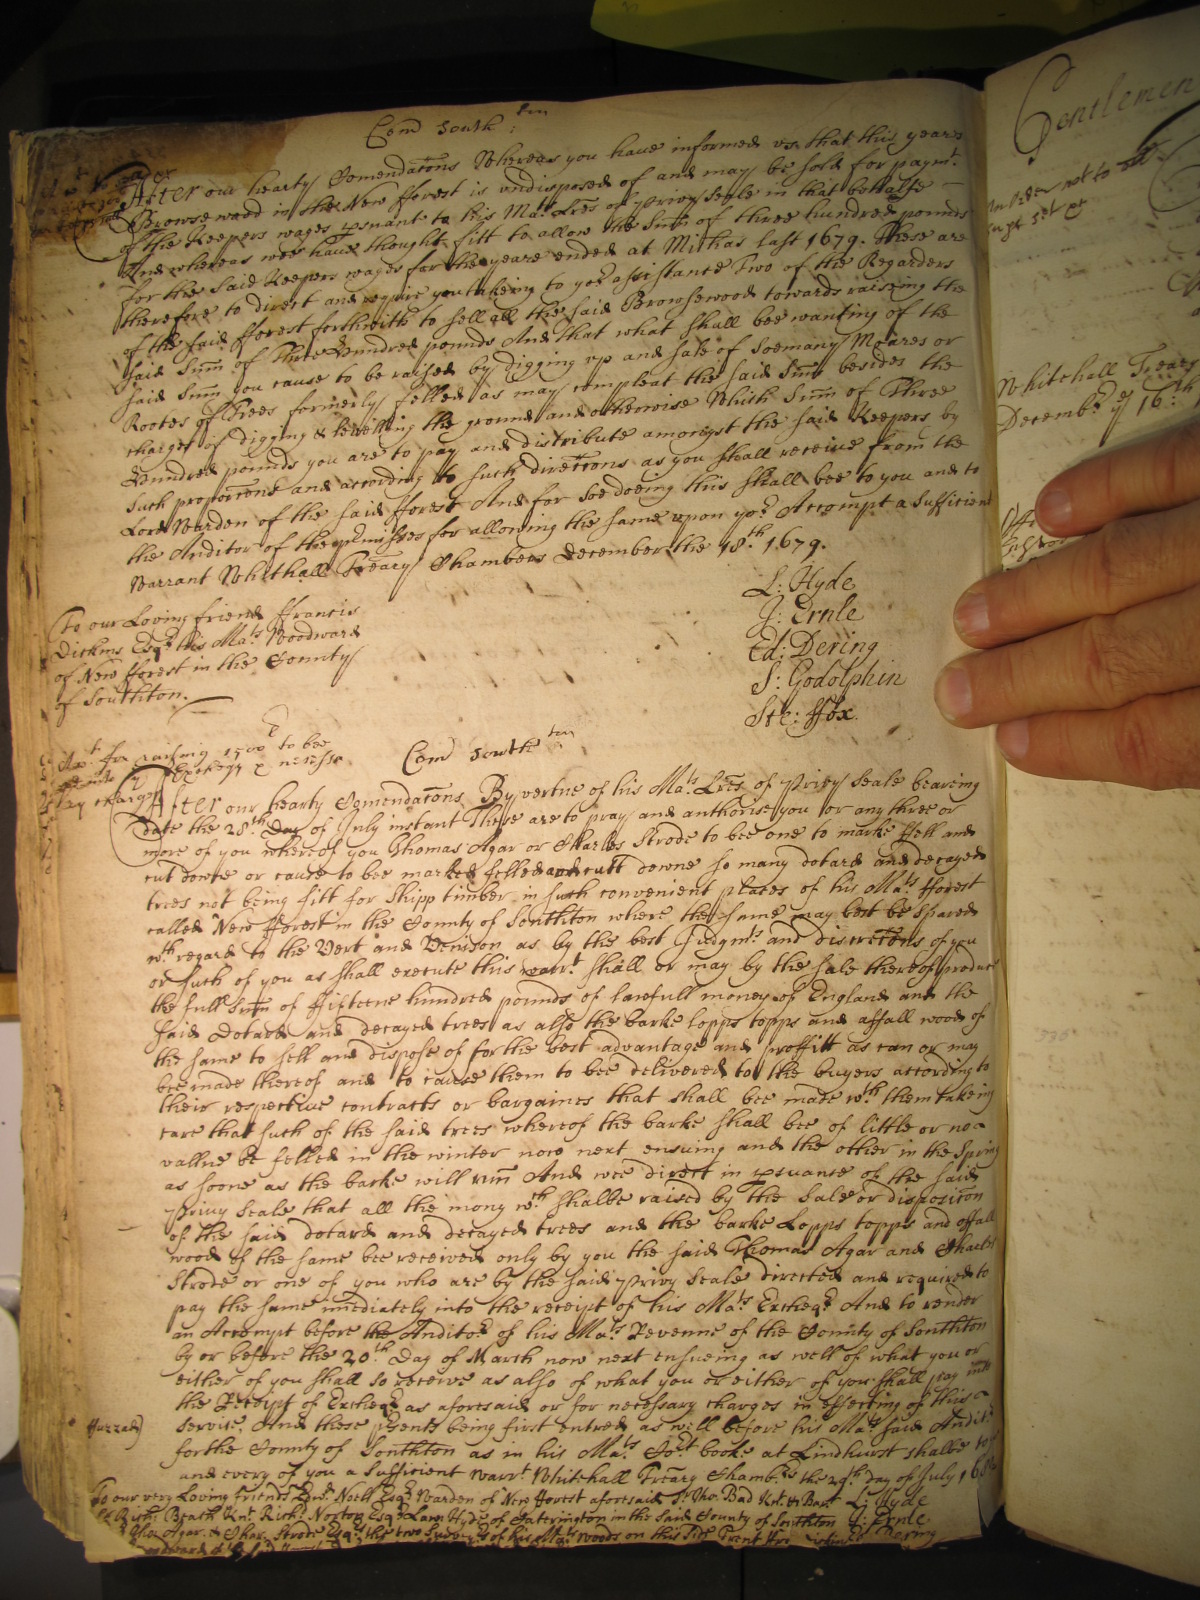 Com̃ South:ton
After our hearty Comendatõns Whereas you have informed vs that this years
Browsewood in the New fforest is undisposed of and may be sold for paymt
of the Keepers wages psuant to his Mats Lrẽs of Privy Seale in that behalfe
And whereas wee have thought fitt to allow the Sum̃ of three hundred pounds
for the said Keepers wages for the yeare ended at Michas last 1679. These are
therefore to direct and require you takeing to yor assistance Two of the Regarders
of the said fforest forthwith to sell all the said Browsewood towards raiseing the
said Sum̃ of Three Hundred pounds And that what shall bee wanting of the
said Sum̃ you cause to be raised by digging vp and sale of soe many Moares or
Rootes of Trees formerly felled as may compleat the said Sum̃ besides the
charges of digging & levelling the ground and otherwise Which Sum̃ of Three
Hundred pounds you are to pay and distribute amongst the said Keepers by
such proporcõns and according to such direccõns as you shall receive from the
Lord Warden of the said fforest And for soe doeing this shall bee to you and to
the Auditor of the pmisses for allowing the same upon yor Accompt a sufficient
Warrant Whitehall Treary Chambers December the 18th 1679.
L: Hyde
J: Ernle
Ed: Dering
S: Godolphin
Ste: ffox
To our Loving friend ffrancis
Dickins Esqr his Mats Woodward
of New fforest in the County
of Southton.
Wt for raising 1500£ to bee
Com̃ South ton
After our hearty Comendatõns By vertue of his Mats Lrẽs of Privy Seale bearing
date the 28th Day of July instant These are to pray and authorise you or any three or
more of you whereof you Thomas Agar or Charles Strode to bee one to marke fell and
cut downe or cause to bee marked felled and cutt downe so many dotard and decayed
trees not being fitt for Shipp timber in such convenient places of his Mats fforest
called New fforest in the County of Southton where the same may best be spared
wth regard to the Vert and Venison as by the best Judgmts and discretõns of you
or such of you as shall execute this warrt shall or may by the sale thereof produce
the full Sum̃ of ffifteene hundred pounds of lawfull money of England and the
said Dotard and decayed trees as also the barke lopps topps and offall wood of
the same to sell and dispose of for the best advantage and proffitt as can or may
bee made thereof and to cause them to bee delivered to the buyers according to
their respective contracts or bargaines that shall bee made wth them takeing
care that such of the said trees whereof the barke shall bee of little or noe
vallue be felled in the winter now next ensuing and the other in the Spring
as soone as the barke will run And wee direct in psuance of the said
Privy Seale that all the mony wch shalbe raised by the Sale or disposicõn
of the said dotard and decayed trees and the barke Lopps topps and offall
wood of the same bee received only by you the said Thomas Agar and Charles
Strode or one of you who are by the said Privy Seale directed and required to
pay the same im̃ediately into the receipt of his Mats Excheqr And to render
an Accompt before the Auditor of his Mats Revenue of the County of Southton
by or before the 20th Day of March now next ensueing as well of what you or
either of you shall so receive as also of what you or either of you shall pay into
the Receipt of Excheqr as aforesaid or for necessary charges in effecting of this
service, And these psents being first entred as well before his Mats said Auditor
for the County of Southton as in his Mats Cort booke at Lindhurst shalbe to
and every of you a sufficient Warrt Whitehall Treary Chambrs the 29th day of July
To our very Loving friends Edwd Noell Esqr Warden of New fforest aforesaid
L: Hyde
Richd Norton Esqr Lawr Hyde of Catterington in the said County of Southton
J: Ernle
Tho: Agar & Char: Strode Esqrs the two Survrs of his Mats woods on this side Trent
Dering
Gentlemen
Whitehall Treary
Decembr ye 16th